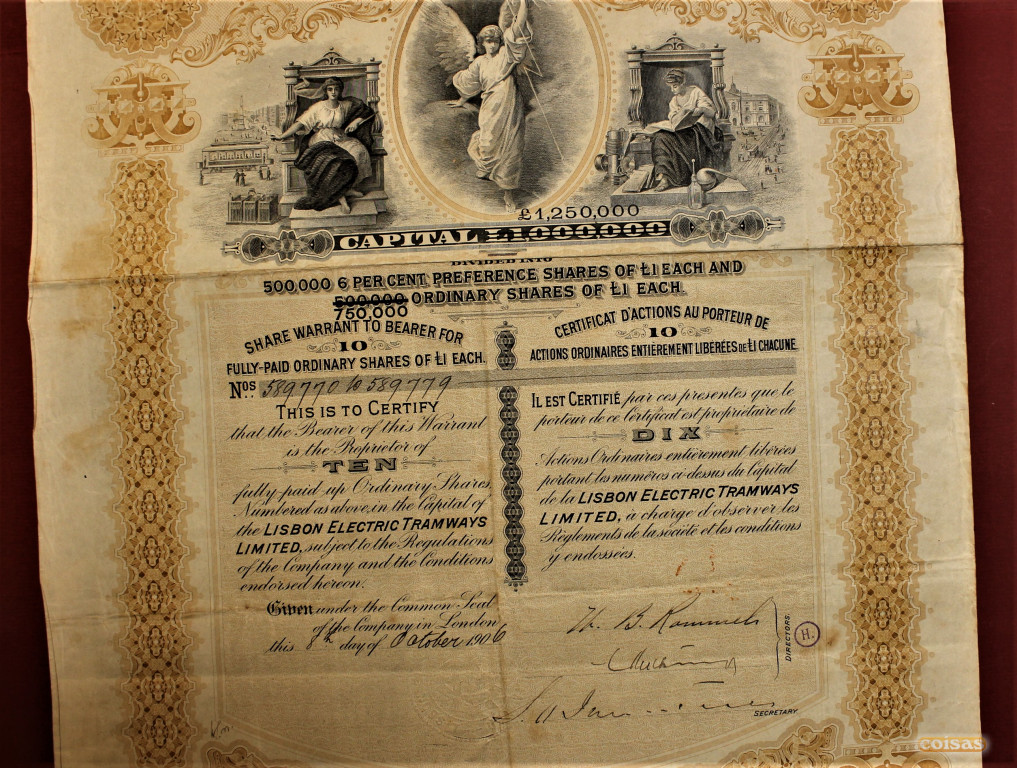 £1,250,000
CAPITAL £1,000,000
DIVIDED INTO
500,000 6 PER CENT PREFERENCE SHARES OF £1 EACH AND
500,000 ORDINARY SHARES OF £1 EACH.
750,000
SHARE WARRANT TO BEARER FOR
10
FULLY-PAID ORDINARY SHARES OF £1 EACH.
Nos. 589770 to 589779
THIS IS TO CERTIFY
that the Bearer of this Warrant
is the Proprietor of
TEN
fully-paid up Ordinary Shares
Numbered as above, in the Capital of
the LISBON ELECTRIC TRAMWAYS
LIMITED, subject to the Regulations
of the Company and the Conditions
endorsed hereon.
Given under the Common Seal
of the Company in London
this 8th day of October 1906
CERTIFICAT D'ACTIONS AU PORTEUR DE
10
ACTIONS ORDINAIRES ENTIÈREMENT LIBÉRÉES DE £1 CHACUNE.
IL EST CERTIFIÉ par ces presentes que le
porteur de ce Certificat est propriétaire de
DIX
Actions Ordinaires entièrement libérées
portant les numéros ci-dessus du Capital
de la LISBON ELECTRIC TRAMWAYS
LIMITED, à charge d'observer les
Règlements de la société et les conditions
y endossées.
DIRECTORS.
H.
SECRETARY.
coisas